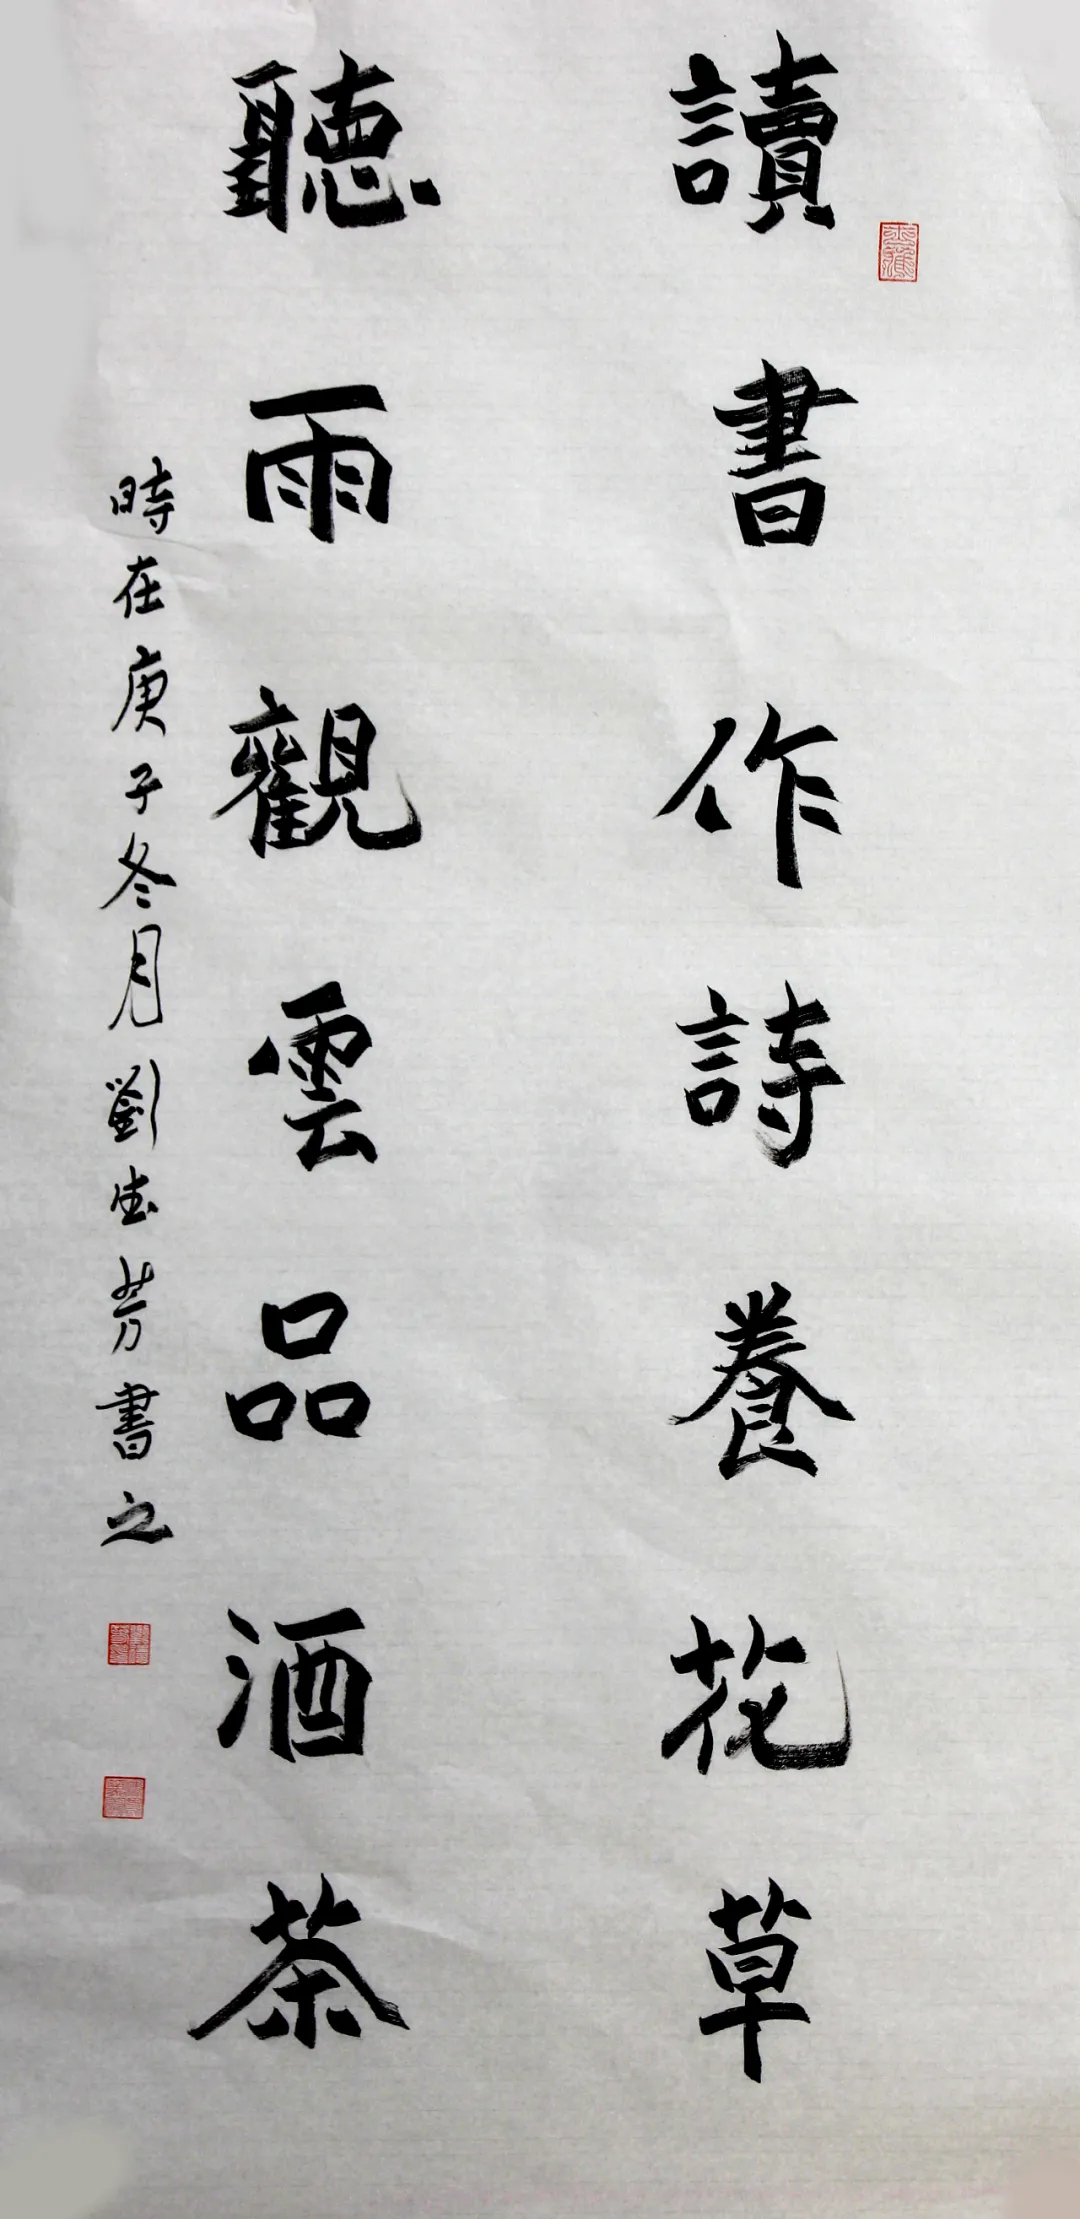 讀書作詩養花草
聽雨觀雲品酒茶
時在庚子冬月劉志芳書之